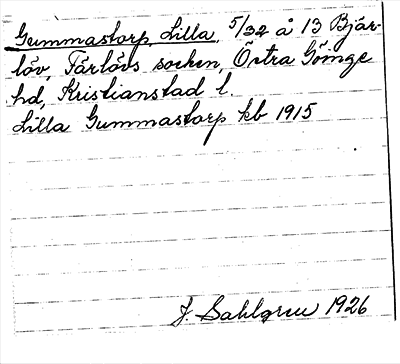 Gummastorp, Lilla, 5/32 å 13 Bjär-
löv, Färlövs socken, Östra Göinge
hd, Kristianstad l.
Lilla Gummastorp kb 1915
J. Sahlgren 1926